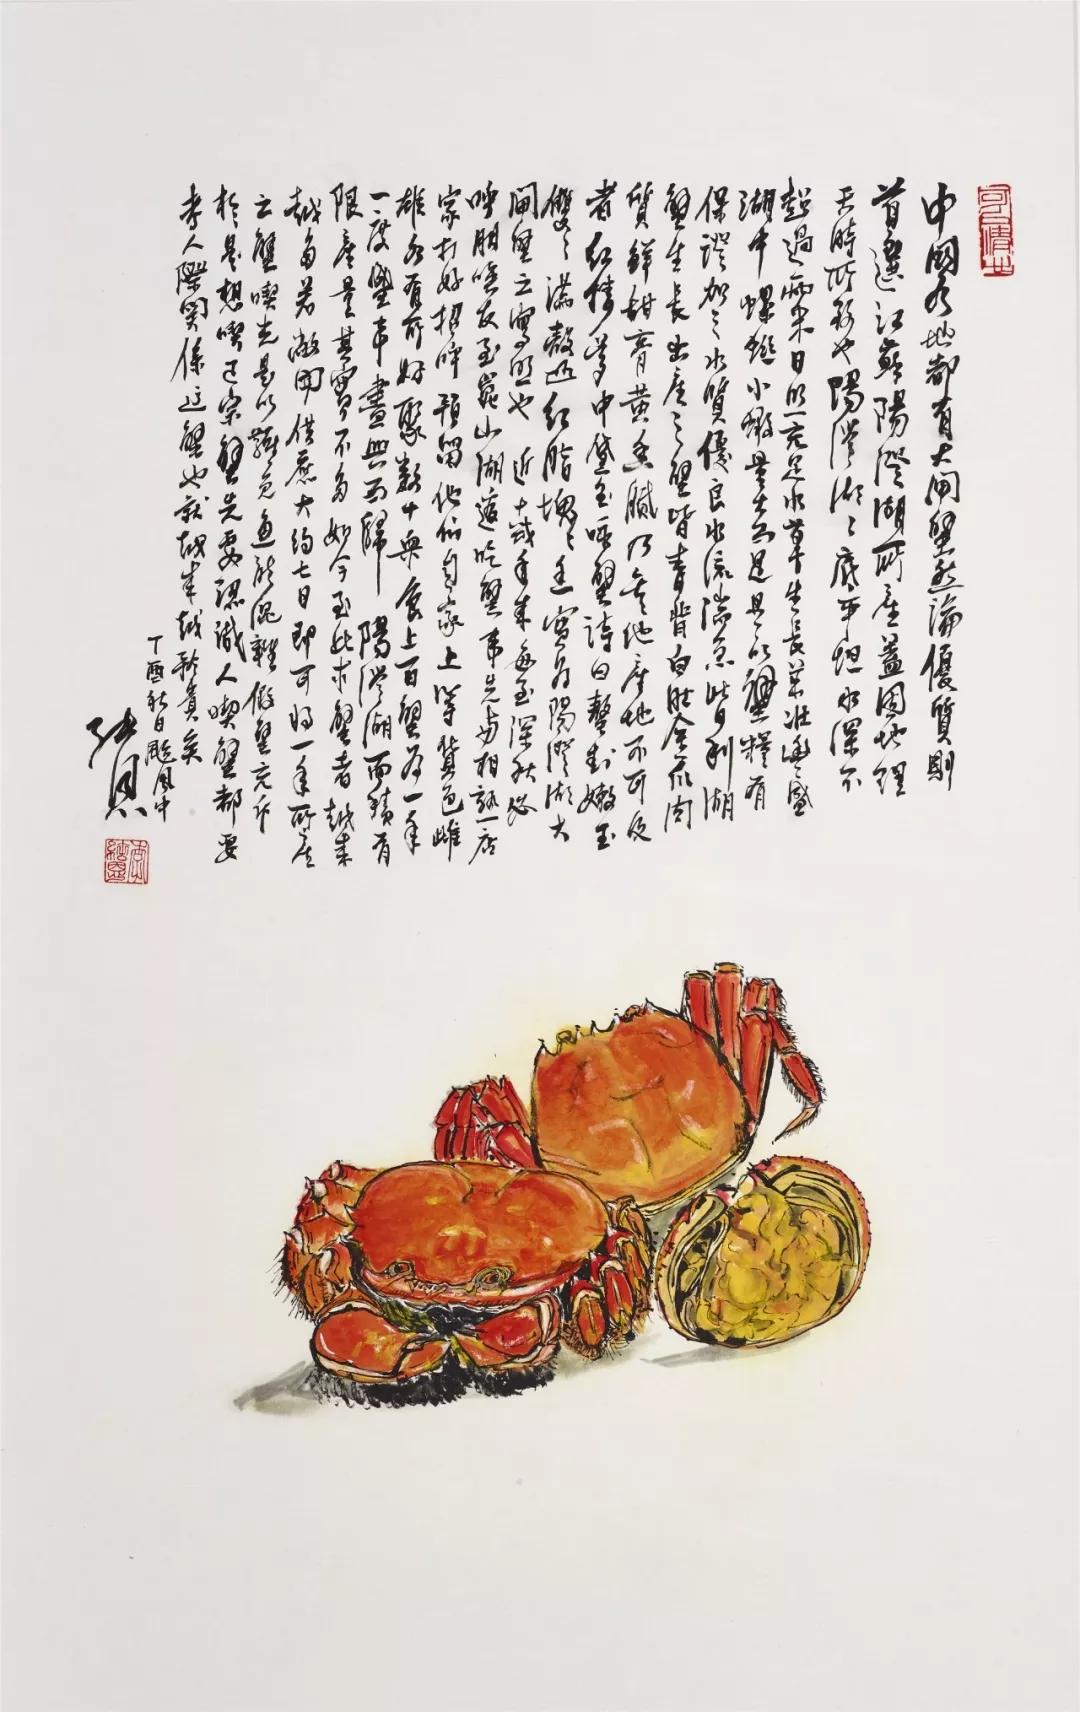 中國各地都有大閘蟹然論優質則
首選江蘇陽澄湖所產蓋因地理
天時所致也陽澄湖湖底平坦水深不
超過兩米日照充足水草生長茂壯豐盛
湖中螺螄小蝦量大而足是以蟹糧有
保證加之水質優良水流湍急皆利湖
蟹生長出產之蟹皆青背白肚金爪肉
質鮮甜膏黃香膩乃其他產地不可及
者紅樓夢中黛玉咏蟹詩曰螯封嫩玉
雙雙滿殼凸紅脂塊塊香實為陽澄湖大
閘蟹之寫照也近十載年來每至深秋必
呼朋喚友至崑山湖邊吃蟹事先與相熟一店
家打好招呼預留他們自家上等貨色雌
雄各有所好聚數十輿食上百蟹為一年
一度盛事盡興而歸陽澄湖面積有
限產量其實不多如今至此求蟹者越來
越多若敞開供應大約七日即可將一年所產
之蟹喫光是以難免魚龍混雜假蟹充斥
於是想喫正宗蟹先要認識人喫蟹都要
考人際關係這蟹也就越來越矜貴矣
丁酉秋日颱風中